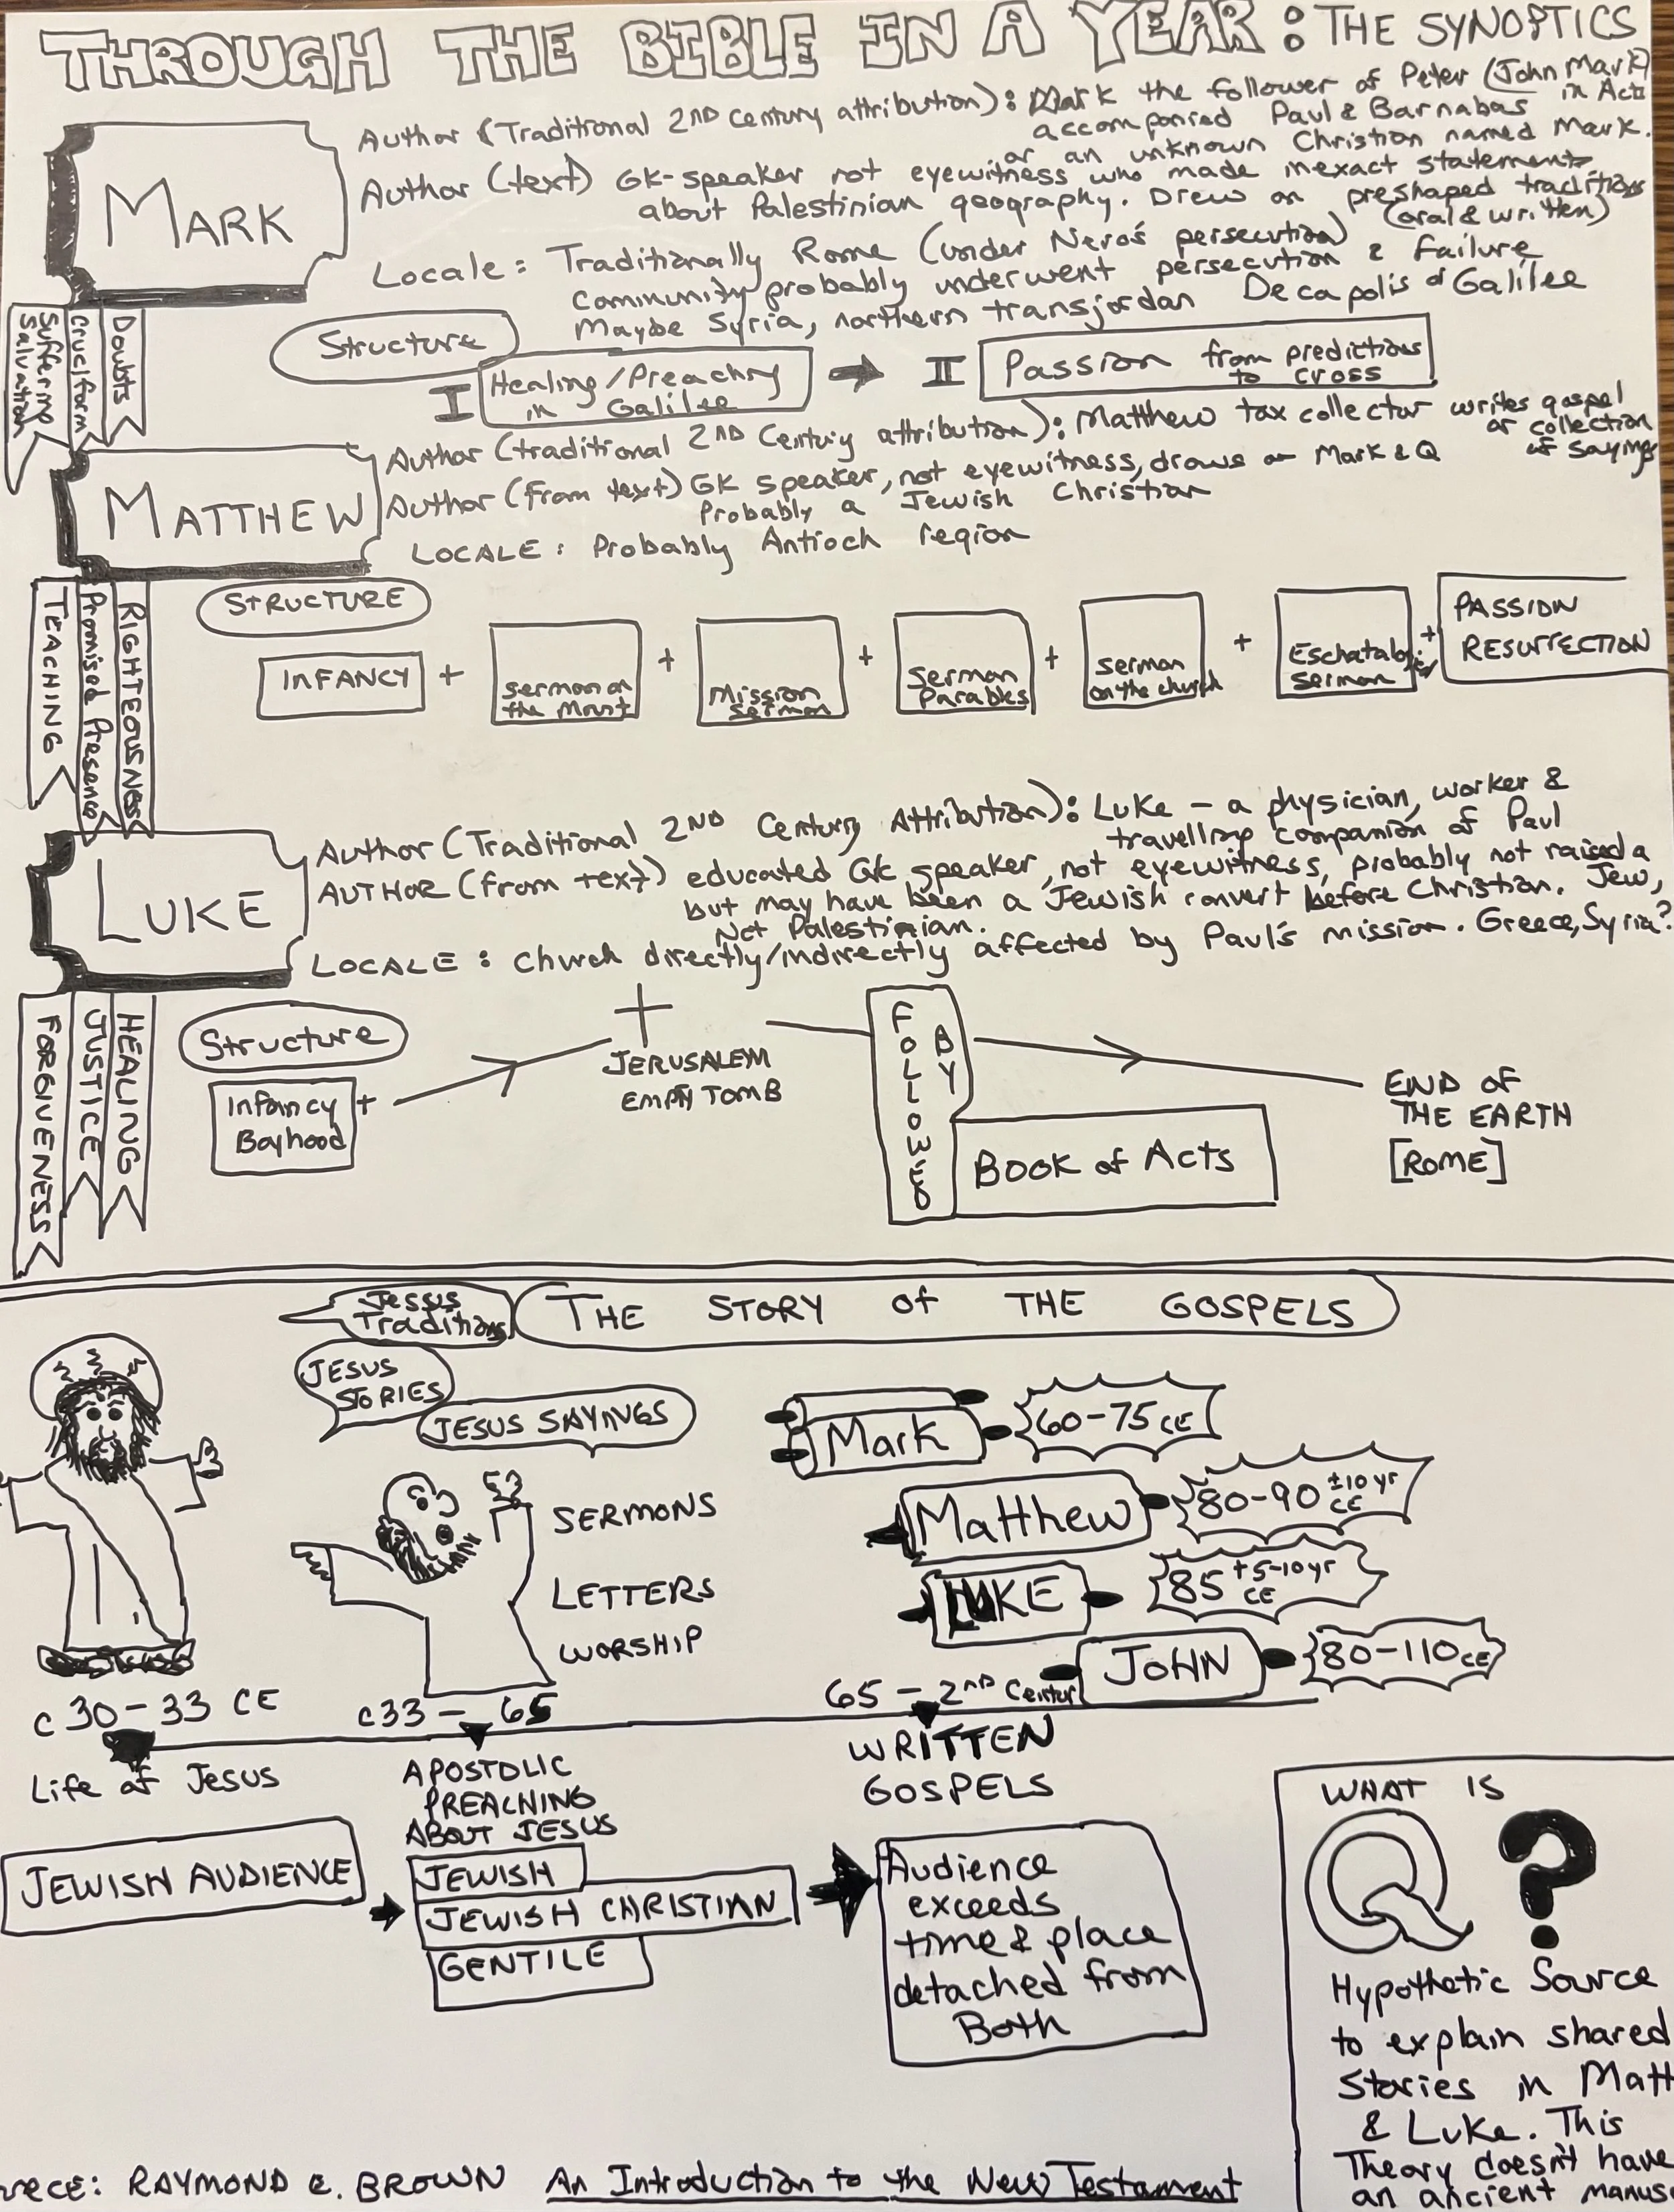 THROUGH THE BIBLE IN A YEAR: THE SYNOPTICS
MARK
Author (Traditional 2ND Century attribution): Mark the follower of Peter (John Mark)
in Acts
accompanied Paul & Barnabas
or an unknown Christian named Mark.
Author (text) GK-speaker not eyewitness who made inexact statements
about Palestinian geography. Drew on preshaped traditions
(oral & written)
Locale: Traditionally Rome (under Nero's persecution)
community probably underwent persecution & failure
Maybe Syria, northern transjordan Decapolis or Galilee
Doubts
Cruciform
Suffering
Salvation
Structure
I Healing/Preaching
in Galilee
II Passion from predictions
to cross
MATTHEW
Author (traditional 2ND Century attribution): Matthew tax collector writes gospel
or collection
of sayings
Author (from text) GK speaker, not eyewitness, draws on Mark & Q
Probably a Jewish Christian
LOCALE: Probably Antioch region
RIGHTEOUSNESS
Promised Presence
TEACHING
STRUCTURE
INFANCY +
Sermon on
the Mount
+
Mission
Sermon
+
Sermon
Parables
+
Sermon
on the church
+
Sermon
+
PASSION
RESURRECTION
LUKE
Author (Traditional 2ND Century Attribution): Luke - a physician, worker &
travelling companion of Paul
AUTHOR (from text) educated GK speaker, not eyewitness, probably not raised a
Jew,
but may have been a Jewish convert before Christian.
Not Palestinian.
LOCALE: Church directly/indirectly affected by Paul's mission. Greece, Syria?
HEALING
JUSTICE
FORGIVENESS
Structure
Infancy +
Boyhood
JERUSALEM
EMPTY TOMB
FOLLOWED
BY
BOOK of ACTS
END OF
THE EARTH
[ROME]
THE STORY of THE GOSPELS
Traditions
JESUS
STORIES
JESUS SAYINGS
SERMONS
LETTERS
WORSHIP
Mark
60-75 CE
Matthew
80-90 ±10 yr
CE
LUKE
85 +5-10 yr
CE
JOHN
80-110 CE
c 30-33 CE
Life of Jesus
c33 - 65
APOSTOLIC
PREACHING
ABOUT JESUS
65 - 2ND Centur
WRITTEN
GOSPELS
JEWISH AUDIENCE
JEWISH
JEWISH CHRISTIAN
GENTILE
Audience
exceeds
time & place
detached from
Both
WHAT IS
Q ?
Hypothetic Source
to explain shared
Stories in Matt
& Luke. This
Theory doesn't have
an ancient manus
RAYMOND E. BROWN An Introduction to the New Testament